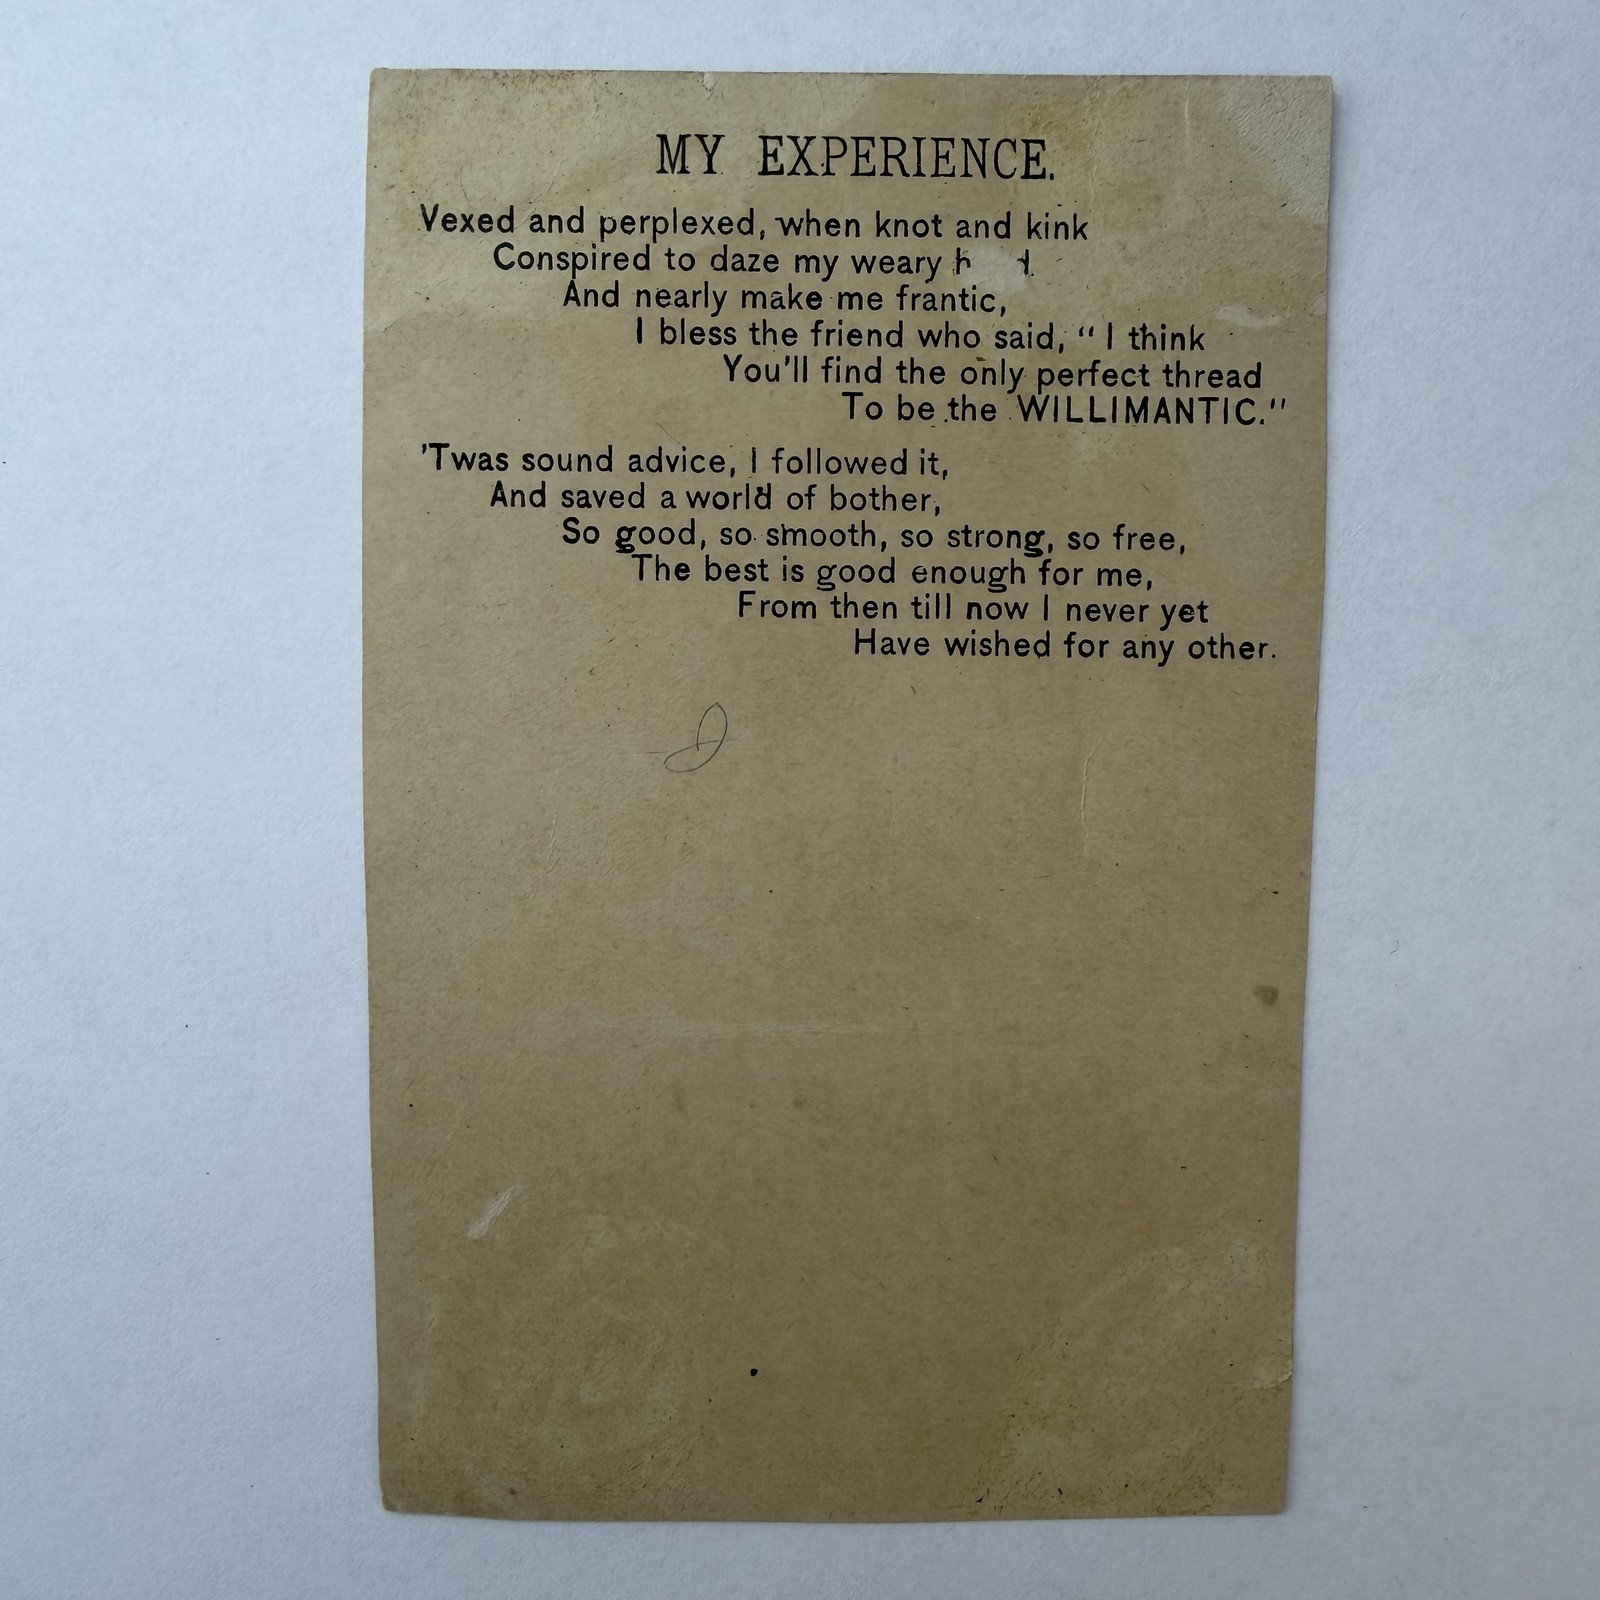 MY EXPERIENCE.
Vexed and perplexed, when knot and kink
Conspired to daze my weary
And nearly make me frantic,
I bless the friend who said, “ I think
You'll find the only perfect thread
To be the WILLIMANTIC."
'Twas sound advice, I followed it,
And saved a world of bother,
So good, so smooth, so strong, so free,
The best is good enough for me,
From then till now I never yet
Have wished for any other.